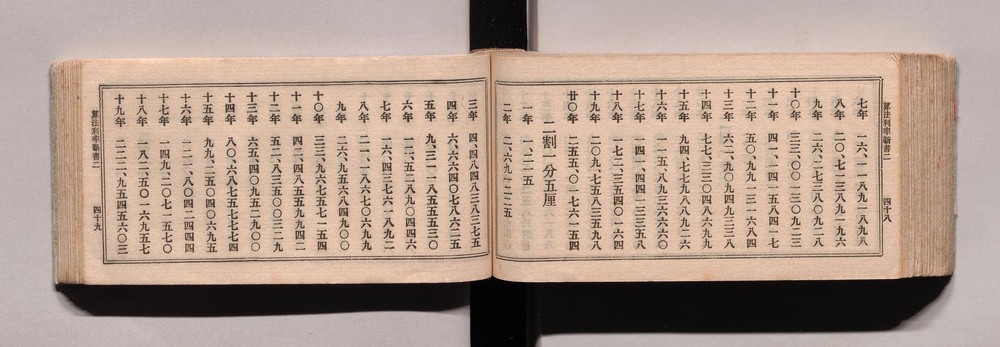 算法利率新書二
四十八
七年 一六、一一八九一八九八
八年 二〇、七一三八九一九六
九年 二六、二七三八〇九二八
十〇年 三三、〇〇一三〇九二三
十一年 四一、一四一五八四一七
十二年 五〇、九九一三一六八四
十三年 六二、九〇九四九三三八
十四年 七七、三三〇四八六九九
十五年 九四、七七九八八九二六
十六年 一一五、八九三六六六〇
十七年 一四一、四四一三三五八
十八年 一七二、三五四〇一六四
十九年 二〇九、七五八三五九八
廿〇年 二五五、〇一七六一五四
二割一分五厘
一年 一、二一五
二年 二、六九一二二五
三年 四、四八四八三八三七五
四年 六、六六四〇七八六二五
五年 九、三一一八五五五三〇
六年 一二、五二八九〇四四六
七年 一六、四三七六一八九二
八年 二一、一八六七〇六九九
九年 二六、九五六八四九〇〇
十〇年 三三、九六七五七一五四
十一年 四二、四八五五九九四二
十二年 五二、八三五〇〇三二九
十三年 六五、四〇九五二九〇〇
十四年 八〇、六八七五七七七四
十五年 九九、二五〇四〇六九五
十六年 一二一、八〇四二四四四
十七年 一四九、二〇七一五七〇
十八年 一八二、五〇一六九五七
十九年 二二二、九五四五六〇三
算法利率新書二
四十九